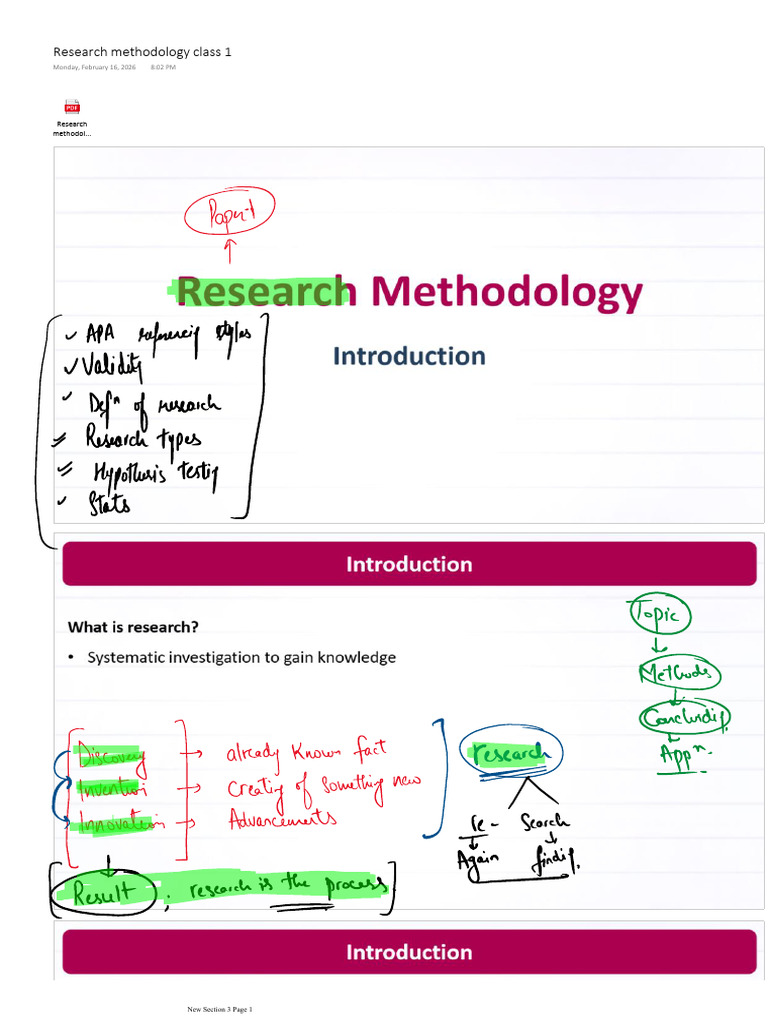 Research methodology class 1
Monday, February 16, 2026 8:02 PM
PDF
Research
methodol...
Paper-1
↑
Research Methodology
Introduction
✓ APA referencing styles
✓ Validity
✓ Defⁿ of research
✓ Research types
✓ Hypothesis testing
✓ Stats
Introduction
What is research?
• Systematic investigation to gain knowledge
Topic
↓
Methods
↓
Concluding
↓
Appⁿ.
Discovery → already known fact
Invention → Creating of something new
Innovation → Advancements
↓
Result ; research is the process
research
re - Search
↓ ↓
Again finding.
Introduction
New Section 3 Page 1